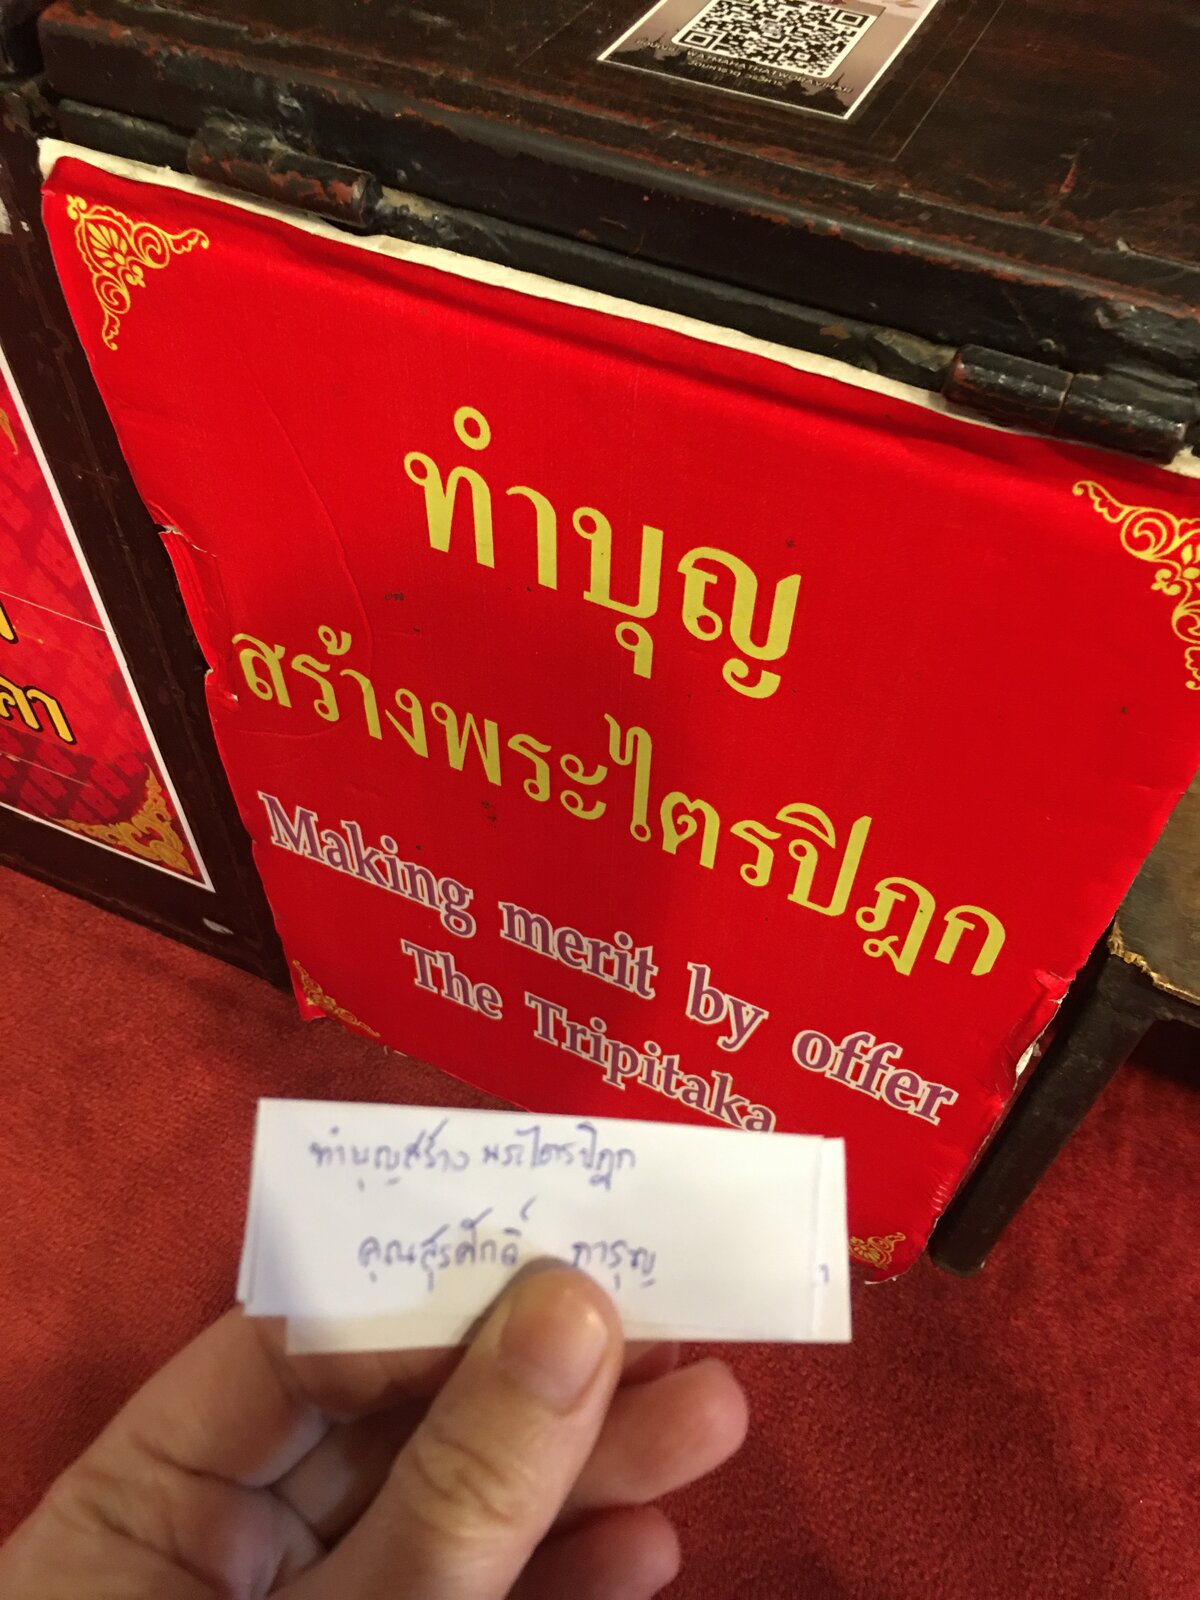 WATMAHATHATWORAVIHAR
ทำบุญ
สร้างพระไตรปิฎก
Making merit by offer
The Tripitaka
ทำบุญสร้าง พระไตรปิฎก
คุณสุรศักดิ์ ภารุญ